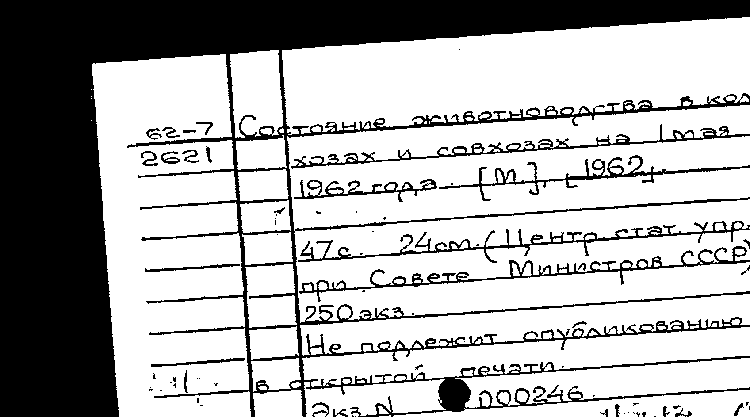 62-7 Состояние животноводства в кол
2621 хозах и совхозах на 1 мая
1962 года. [М.], [1962].
47с. 24см. (Центр. стат. упр.
при Совете Министров СССР)
250 экз.
Не подлежит опубликованию
в открытой печати.
Экз. N 000246.